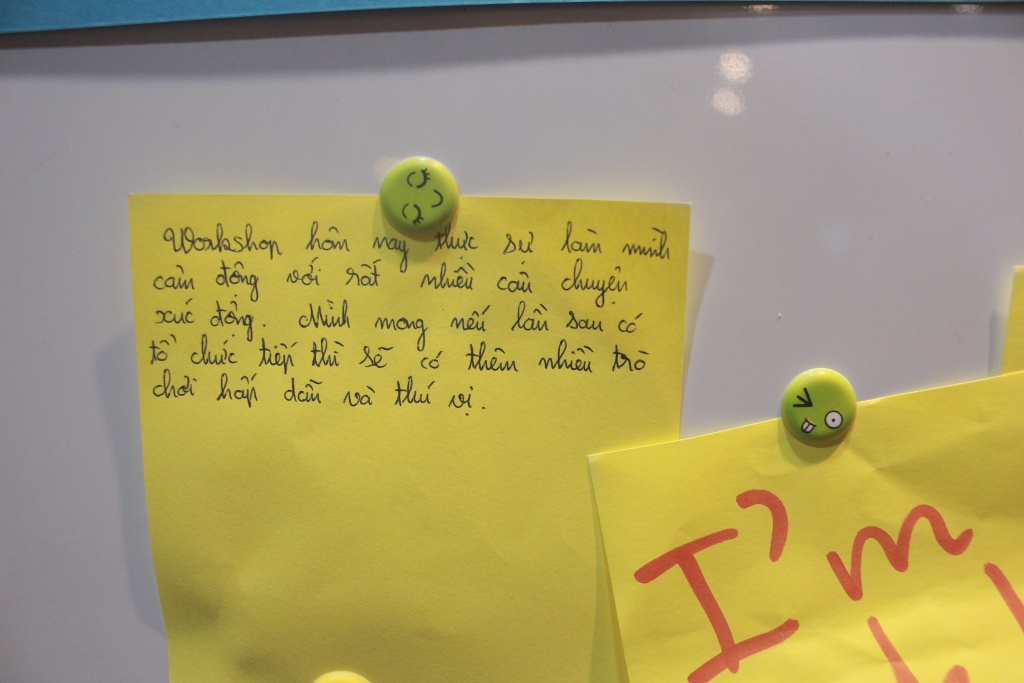 Workshop hôm nay thực sự làm mình
cảm động với rất nhiều câu chuyện
xúc động. Mình mong nếu lần sau có
tổ chức tiếp thì sẽ có thêm nhiều trò
chơi hấp dẫn và thú vị.
I'm